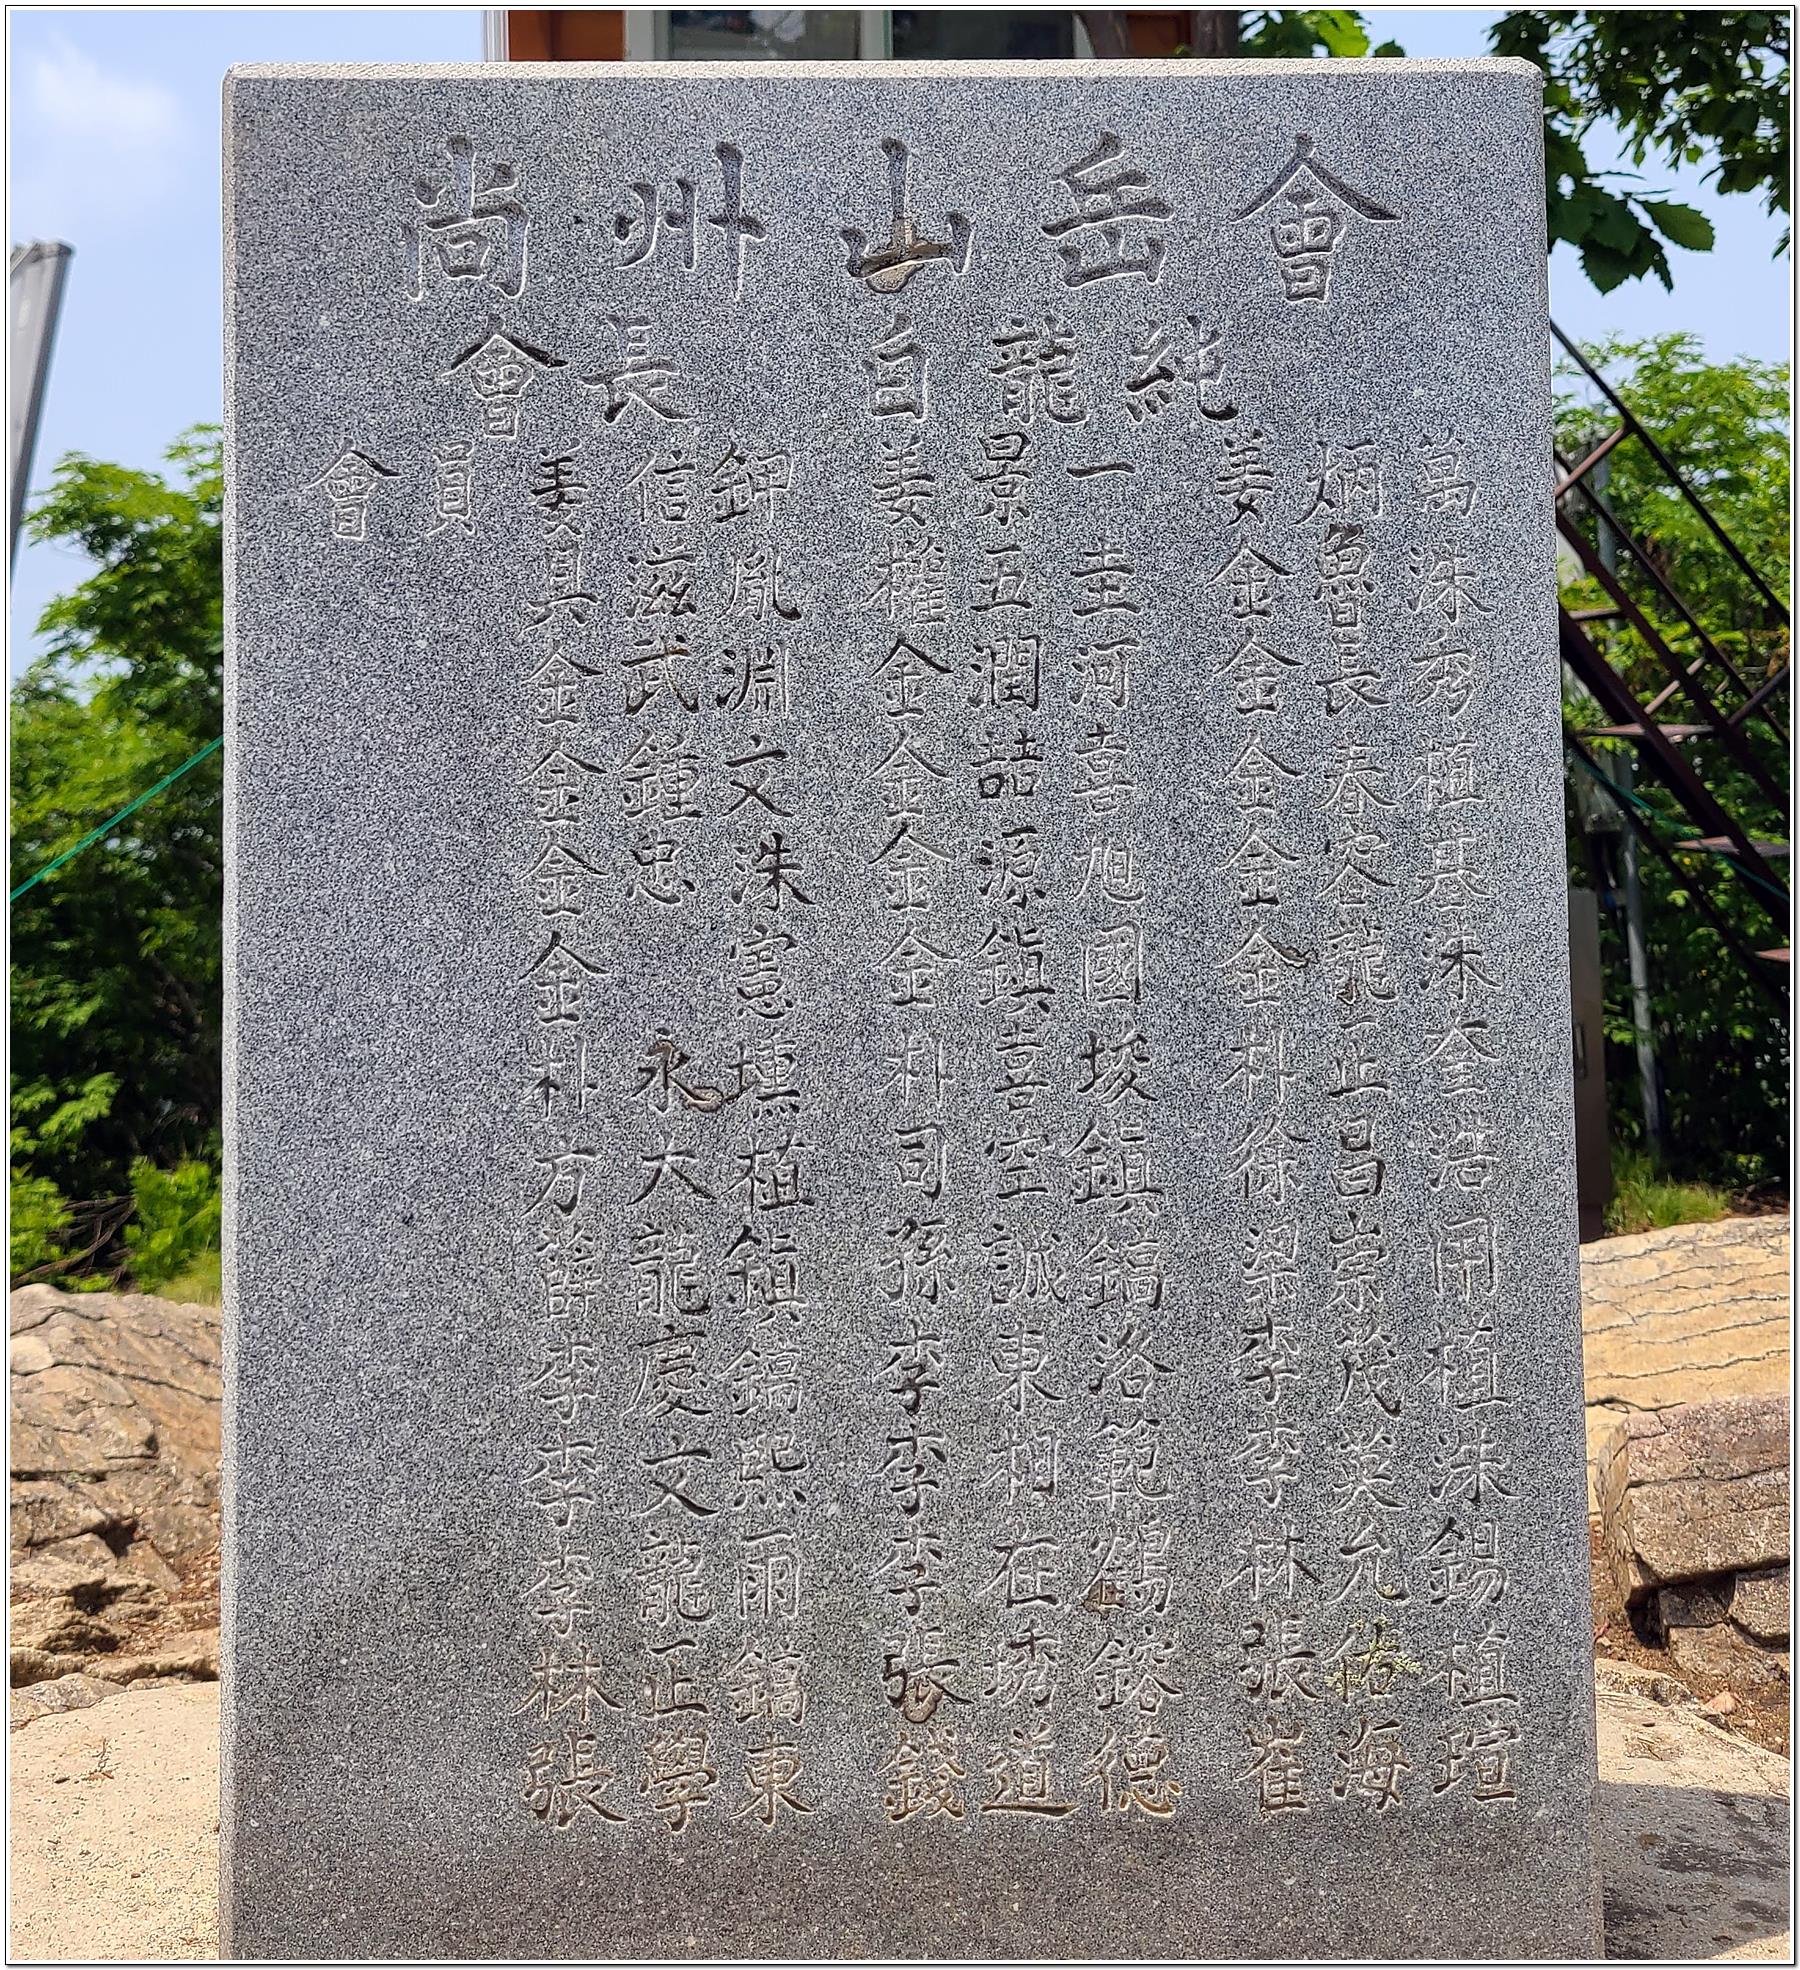 尙州山岳會
會長 白龍純
會員 姜信鉀 姜景一 姜炳萬
具滋胤 權五圭 金魯洙
金武淵 金潤河 金長秀
金鐘文 金喆喜 金春植
金忠洙 金源旭 金容基
金 憲 金鎭國 金龍洙
朴永壎 朴喜埈 朴正奎
方大植 司空鎭 徐昌浩
薛龍鎭 孫誠鎬 梁崇用
李慶鎬 李東洛 李茂植
李文熙 李相範 李英洙
李龍雨 李在鶴 林允錫
林正鎬 張琇鎔 張佑植
張學東 錢道德 崔海瑄